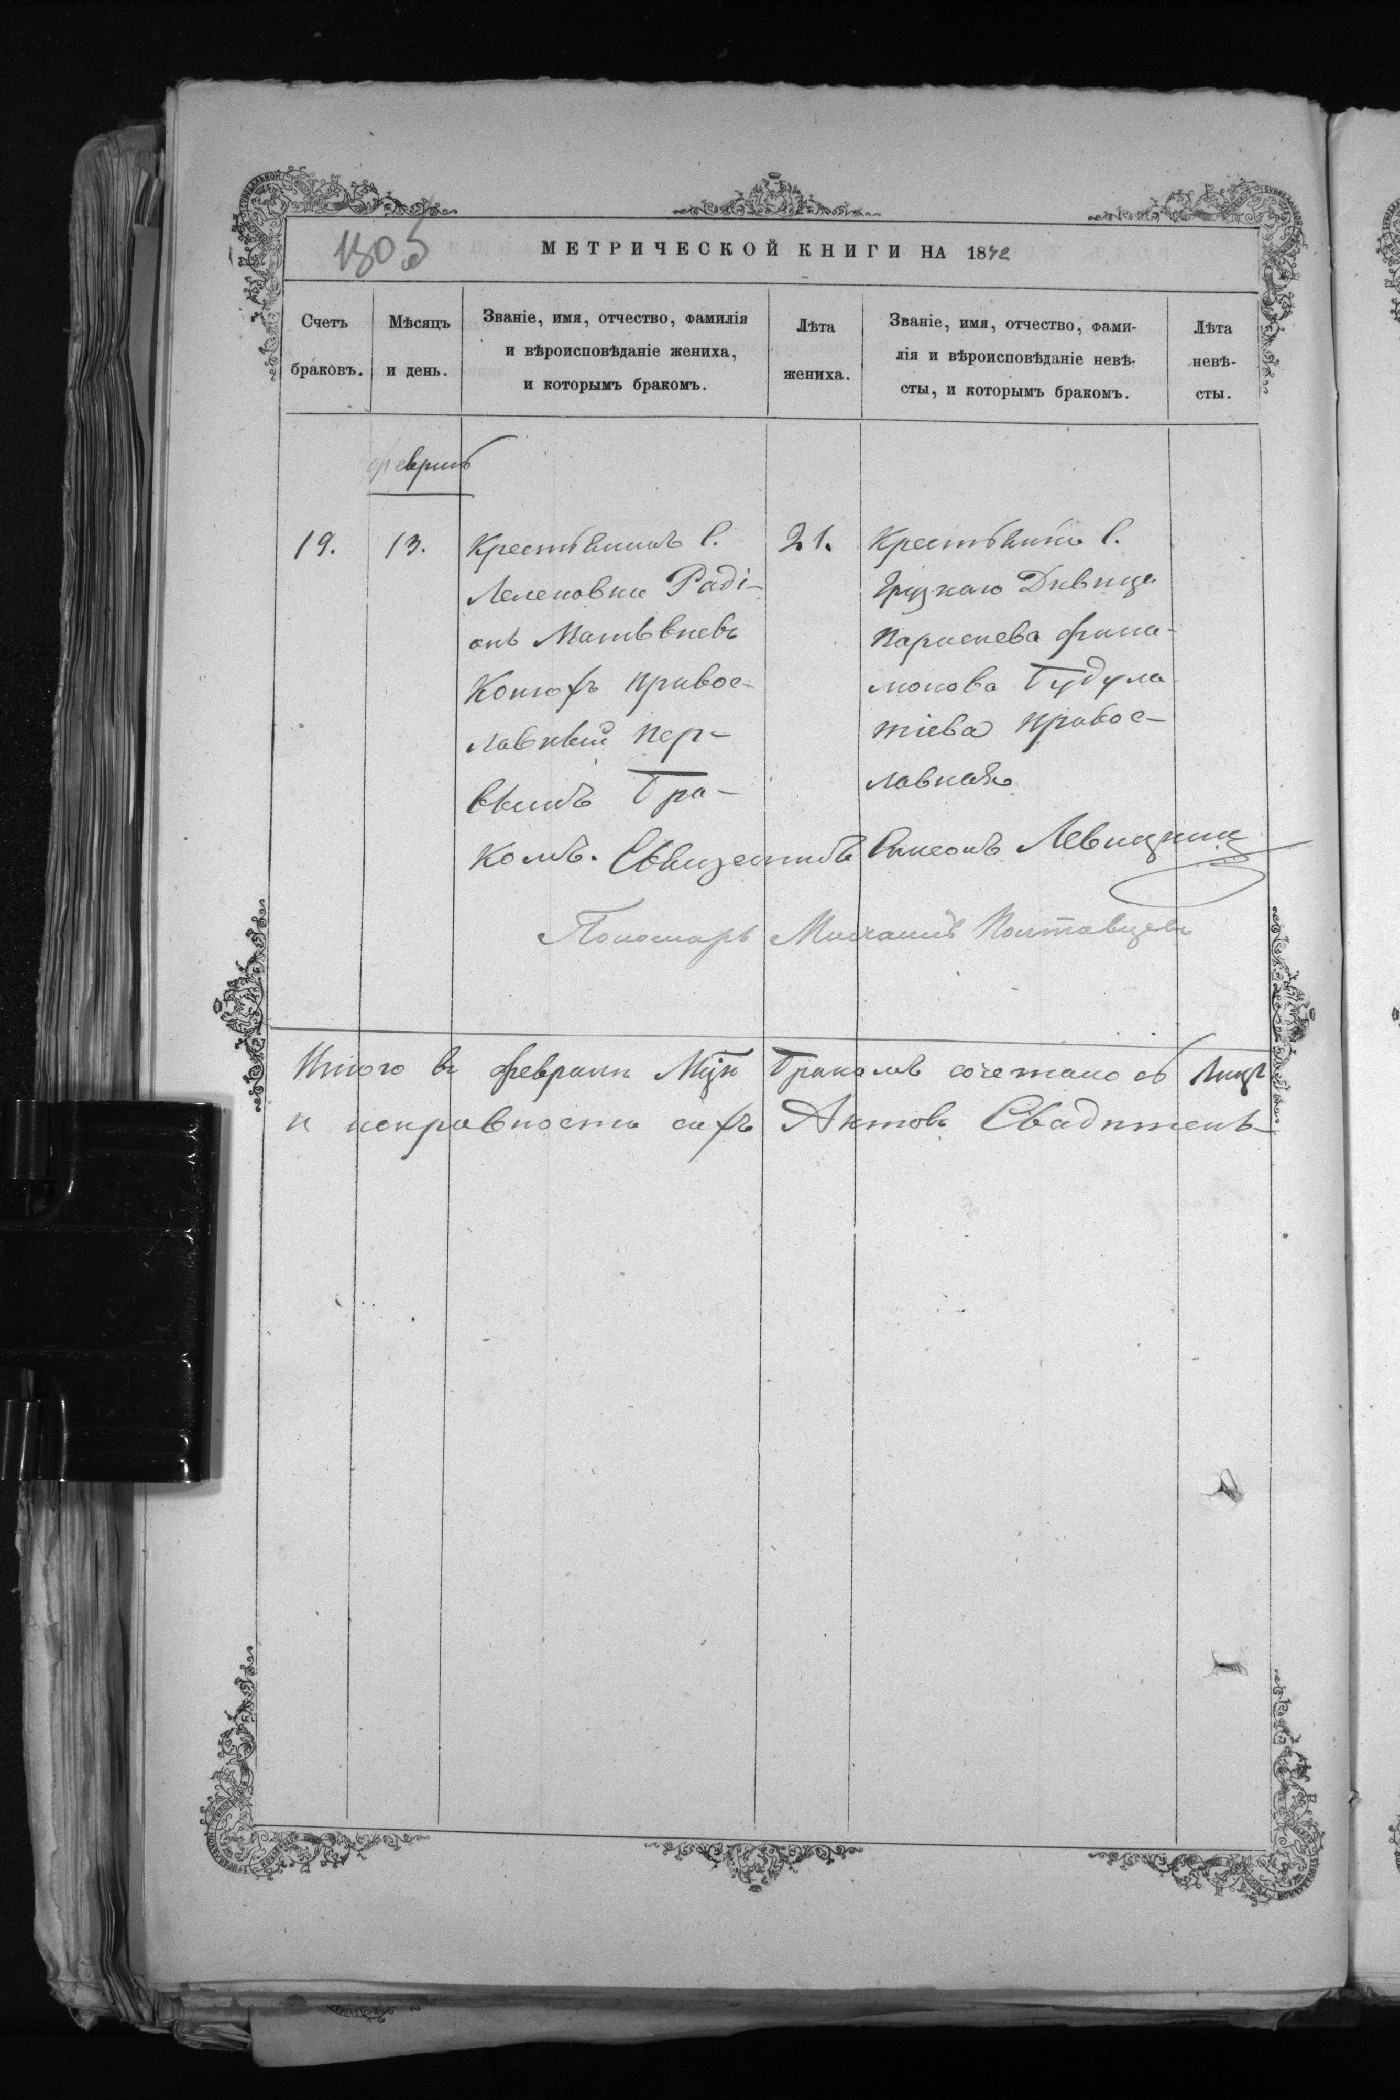 МЕТРИЧЕСКОЙ КНИГИ НА 1872
Счетъ браковъ.
Мѣсяцъ и день.
Званіе, имя, отчество, фамилія
и вѣроисповѣданіе жениха,
и которымъ бракомъ.
Лѣта жениха.
Званіе, имя, отчество, фами-
лія и вѣроисповѣданіе невѣ-
сты, и которымъ бракомъ.
Лѣта невѣ-
сты.
февраль
19.
13.
Крестьянинъ С.
Лелековки Раді-
онъ Матвѣевъ
правос-
лавный пер-
вымъ бра-
комъ.
21.
Крестьянка С.
Грузкаго Дѣвица
Параскева Фила-
монова
правос-
лавная
Священникъ Симеонъ Левицкий
Пономарь Михаилъ Полтавцевъ
Итого въ февралѣ бракомъ сочетано лицъ
и исправность сихъ Актовъ Свидѣтель-